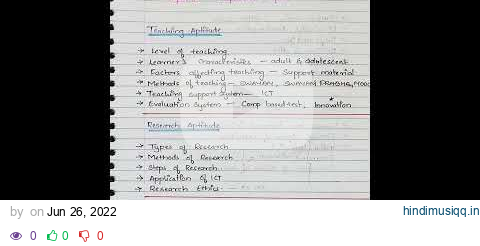 Teaching Aptitude
→ Level of teaching
→ Learner's Characteristics - adult & adolescent
→ Factors affecting teaching - Support material
→ Methods of teaching - SWAYAM, SWAYAM PRABHA, MOOC
→ Teaching support system - ICT
→ Evaluation system - Comp based test, Innovation
Research Aptitude
→ Types of Research
→ Methods of Research
→ Steps of Research
→ Application of ICT
→ Research Ethics
by on Jun 26, 2022
hindimusiqq.in
0 0 0